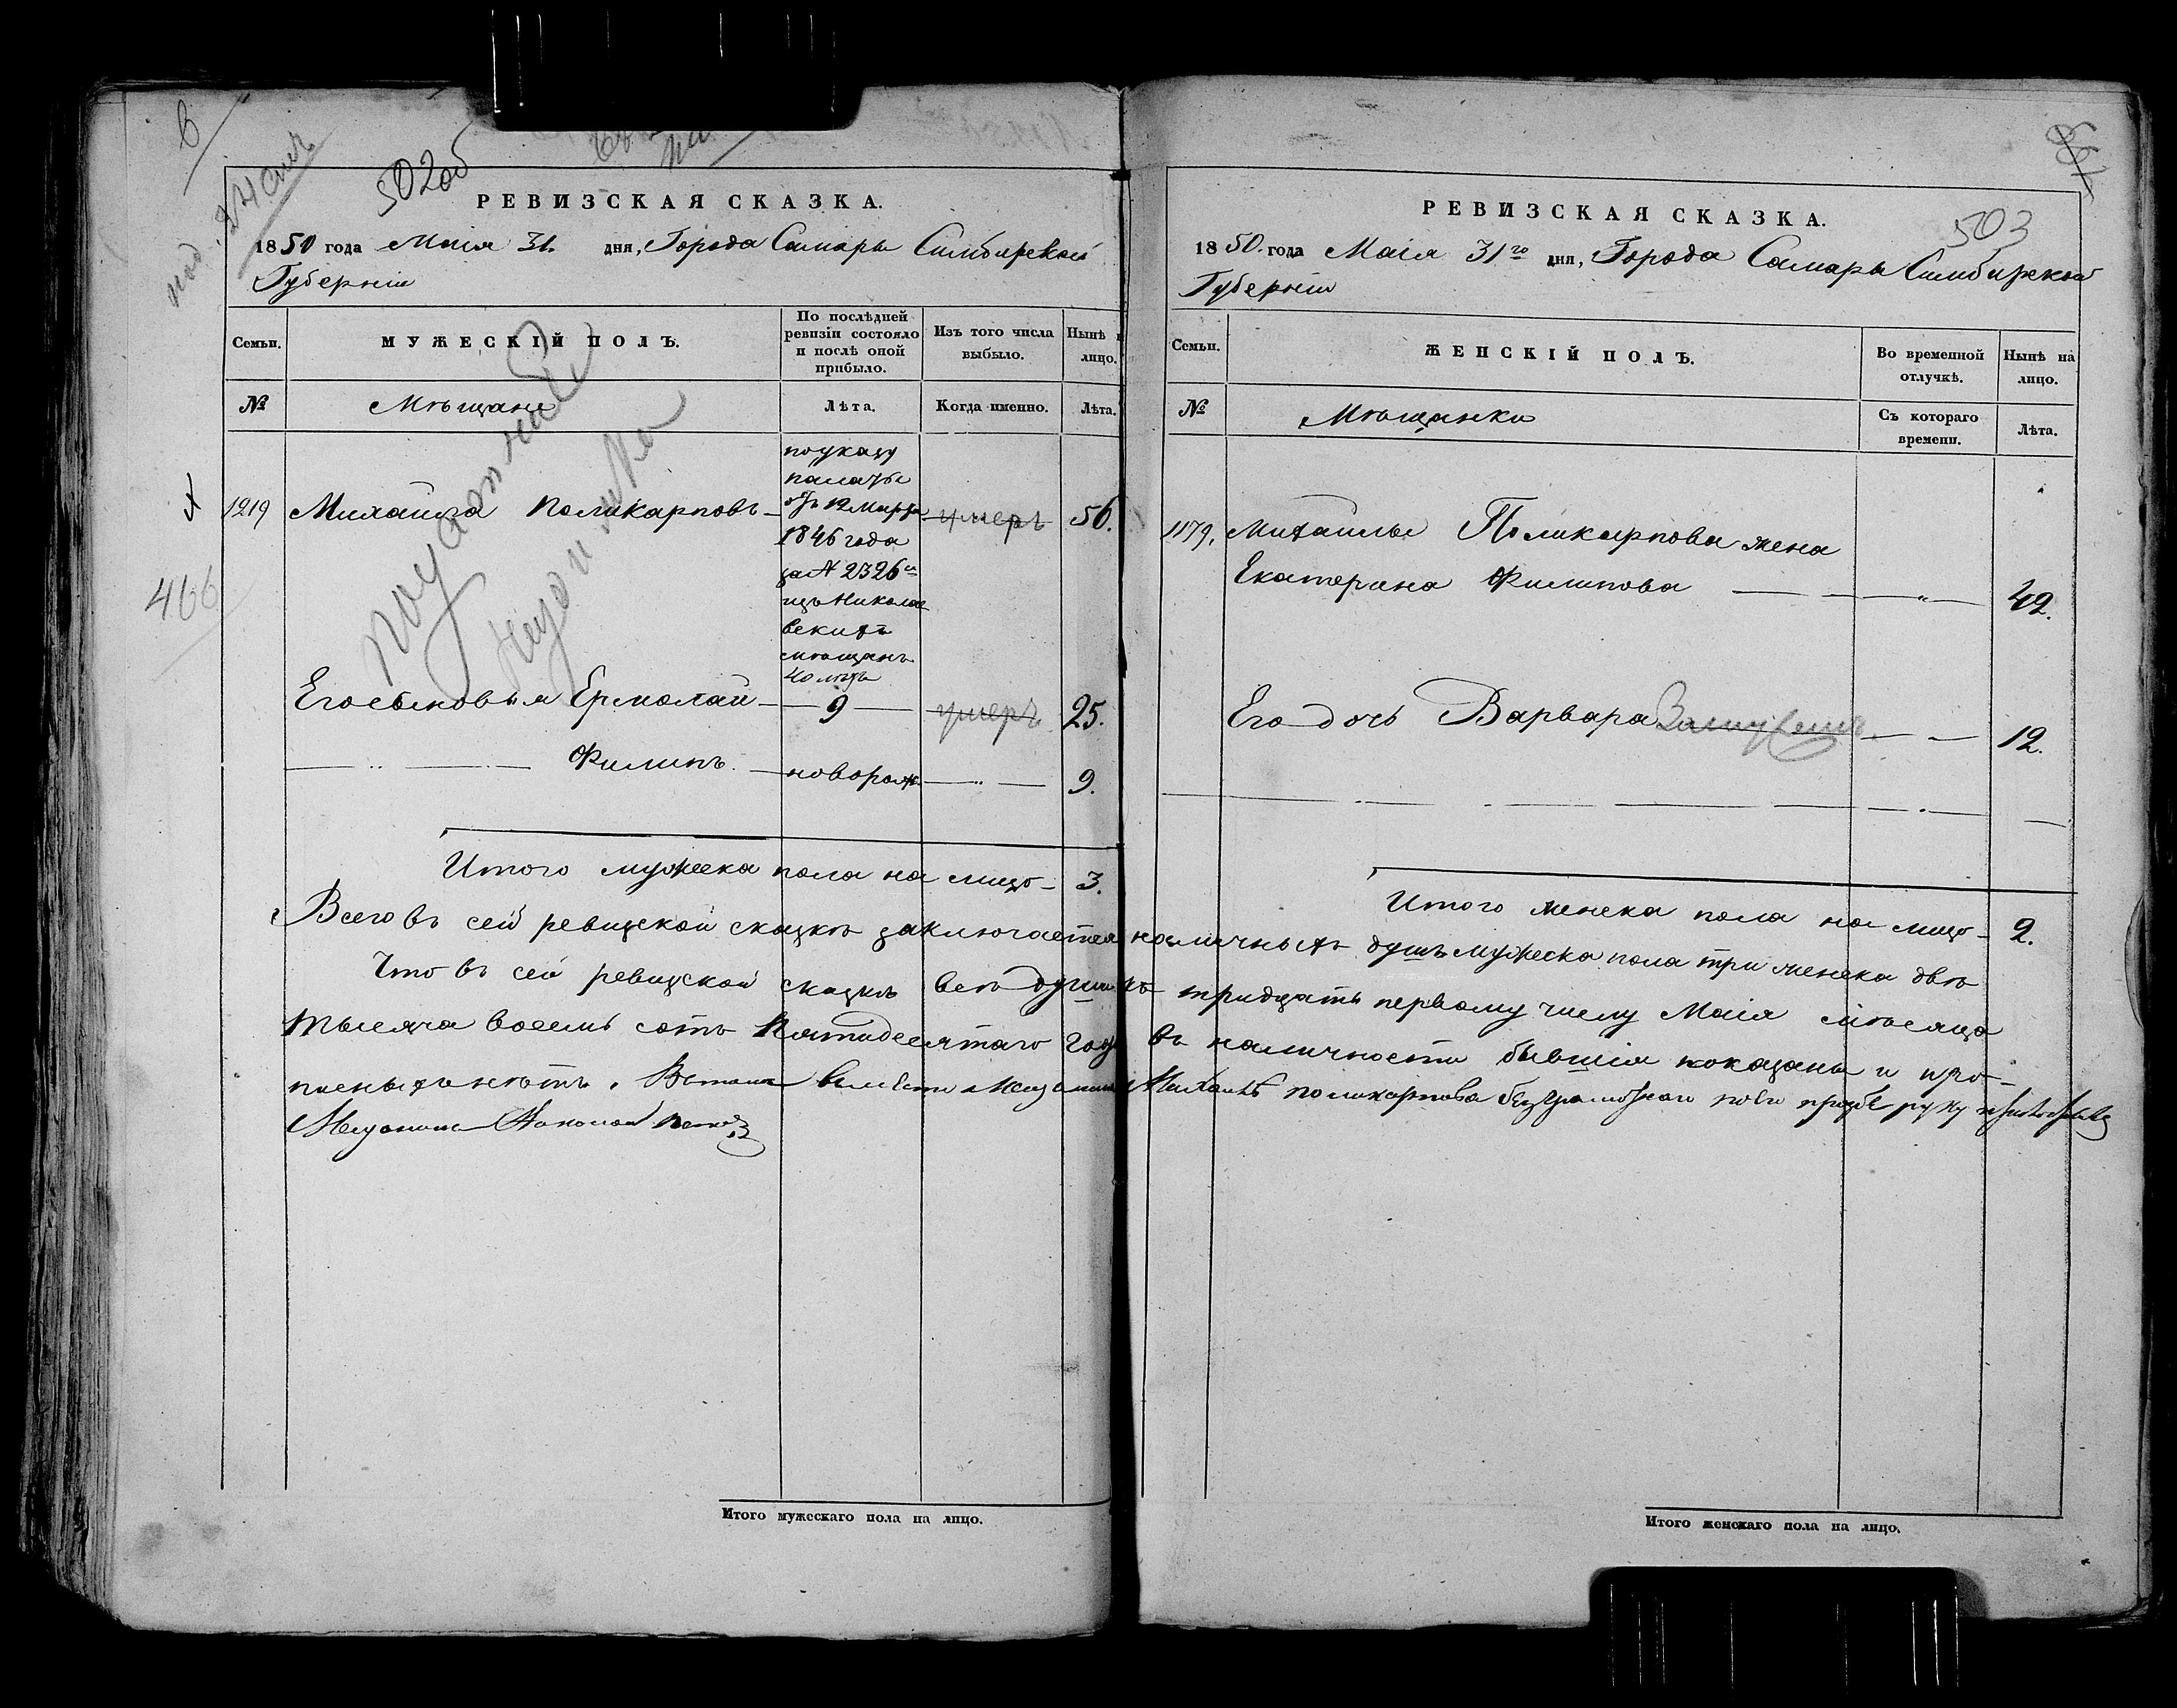 502об
РЕВИЗСКАЯ СКАЗКА.
1850 года Маія 31. дня, Города Самары Симбирской
Губерніи
Семьи.
МУЖЕСКІЙ ПОЛЪ.
По послѣдней
ревизіи состояло
и послѣ оной
прибыло.
Изъ того числа
выбыло.
Нынѣ н
лицо.
№
Мѣщане
Лѣта.
Когда именно.
Лѣта.
по указу
палаты
отъ 12 Марта
1846 года
за № 2326
изъ Николаевскихъ
мѣщанъ
40 лѣтъ
1219 Михаила Поликарповъ умеръ 56.
466
Его сыновья Ермолай 9 умеръ 25.
Филипъ. новорож. 9.
Итого мужеска пола на лицо 3.
503
РЕВИЗСКАЯ СКАЗКА.
1850. года Маія 31го дня, Города Самары Симбирской
Губерніи
Семьи.
ЖЕНСКІЙ ПОЛЪ.
Во временной
отлучкѣ.
Нынѣ на
лицо.
№
Мѣщанки
Съ котораго
времени.
Лѣта.
1179. Михайлы Поликарпова жена
Екатерина Филипова 42.
Его дочь Варвара 12.
Итого женска пола на лицо 2.
Всего въ сей ревизской сказкѣ заключается наличныхъ душъ мужеска пола три женска двѣ
Что въ сей ревизской сказкѣ всѣ души къ тридцать первому числу Маія мѣсяца
тысяча восемь сотъ пятидесятаго года въ наличности бывшія показаны и про-
писныхъ нѣтъ.
Итого мужескаго пола на лицо.
Итого женскаго пола на лицо.